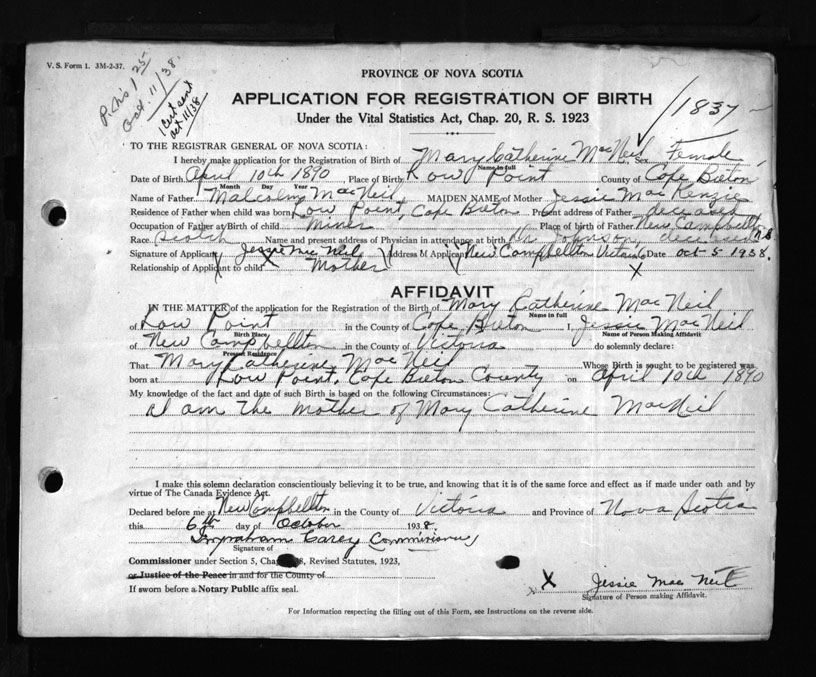 V. S. Form 1. 3M-2-37.
Oct. 11/38.
1 Cert sent
Oct 11/38
PROVINCE OF NOVA SCOTIA
APPLICATION FOR REGISTRATION OF BIRTH
1837
Under the Vital Statistics Act, Chap. 20, R. S. 1923
TO THE REGISTRAR GENERAL OF NOVA SCOTIA:
I hereby make application for the Registration of Birth of Mary Catherine MacNeil Sex Female
Name in full
Date of Birth April 10th 1890 Place of Birth Low Point County of Cape Breton
Month Day Year
Name of Father Malcolm MacNeil MAIDEN NAME of Mother Jessie MacKenzie
Residence of Father when child was born Low Point, Cape Breton Present address of Father deceased
Occupation of Father at Birth of child Miner Place of birth of Father New Campbellton N.S.
Race Scotch Name and present address of Physician in attendance at birth Dr Johnson, deceased
Signature of Applicant Jessie Mc Neil Address of Applicant New Campbellton Victoria Co Date Oct 5 1938.
Relationship of Applicant to child X Mother X
AFFIDAVIT
IN THE MATTER of the application for the Registration of the Birth of Mary Catherine MacNeil
Name in full
of Low Point in the County of Cape Breton I, Jessie MacNeil
Birth Place Name of Person Making Affidavit
of New Campbellton in the County of Victoria do solemnly declare:
Present Residence
That Mary Catherine MacNeil Whose Birth is sought to be registered was
born at Low Point, Cape Breton County on April 10th 1890
My knowledge of the fact and date of such Birth is based on the following Circumstances:
I am the mother of Mary Catherine MacNeil
I make this solemn declaration conscientiously believing it to be true, and knowing that it is of the same force and effect as if made under oath and by
virtue of The Canada Evidence Act.
Declared before me at New Campbellton in the County of Victoria and Province of Nova Scotia
this 6th day of October 1938
Carey Commissioner
Signature of
Commissioner under Section 5, Revised Statutes, 1923,
or Justice of the Peace in and for the County of
If sworn before a Notary Public affix seal.
X Jessie MacNeil
Signature of Person making Affidavit.
For Information respecting the filling out of this Form, see Instructions on the reverse side.